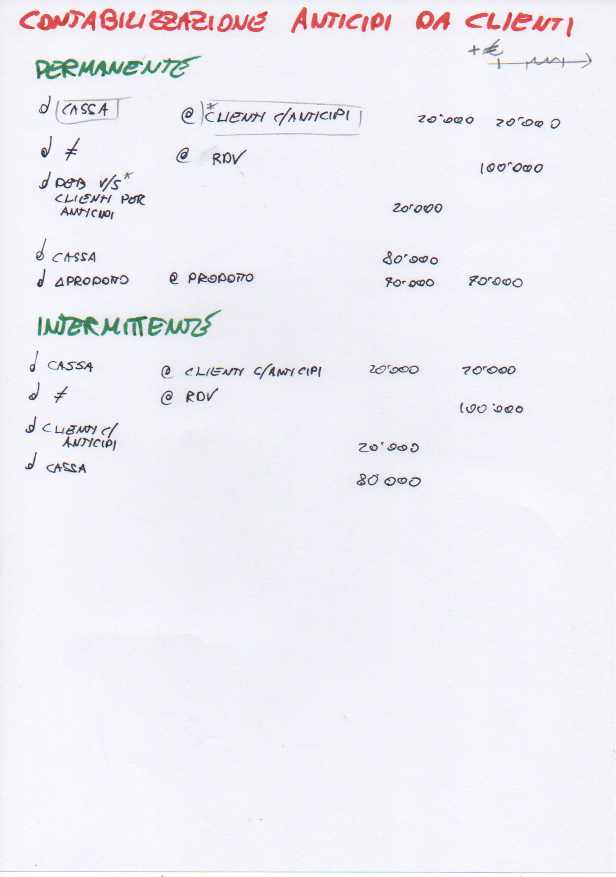 CONTABILIZZAZIONE ANTICIPI DA CLIENTI
+€
PERMANENTE
d CASSA @ *CLIENTI C/ANTICIPI 20'000 20'000
d ≠ @ RDV 100'000
d DEB V/S*
CLIENTI PER
ANTICIPI 20'000
d CASSA 80'000
d ΔPRODOTTO @ PRODOTTO 70'000 70'000
INTERMITTENTE
d CASSA @ CLIENTI C/ANTICIPI 20'000 20'000
d ≠ @ RDV 100'000
d CLIENTI C/
ANTICIPI 20'000
d CASSA 80'000